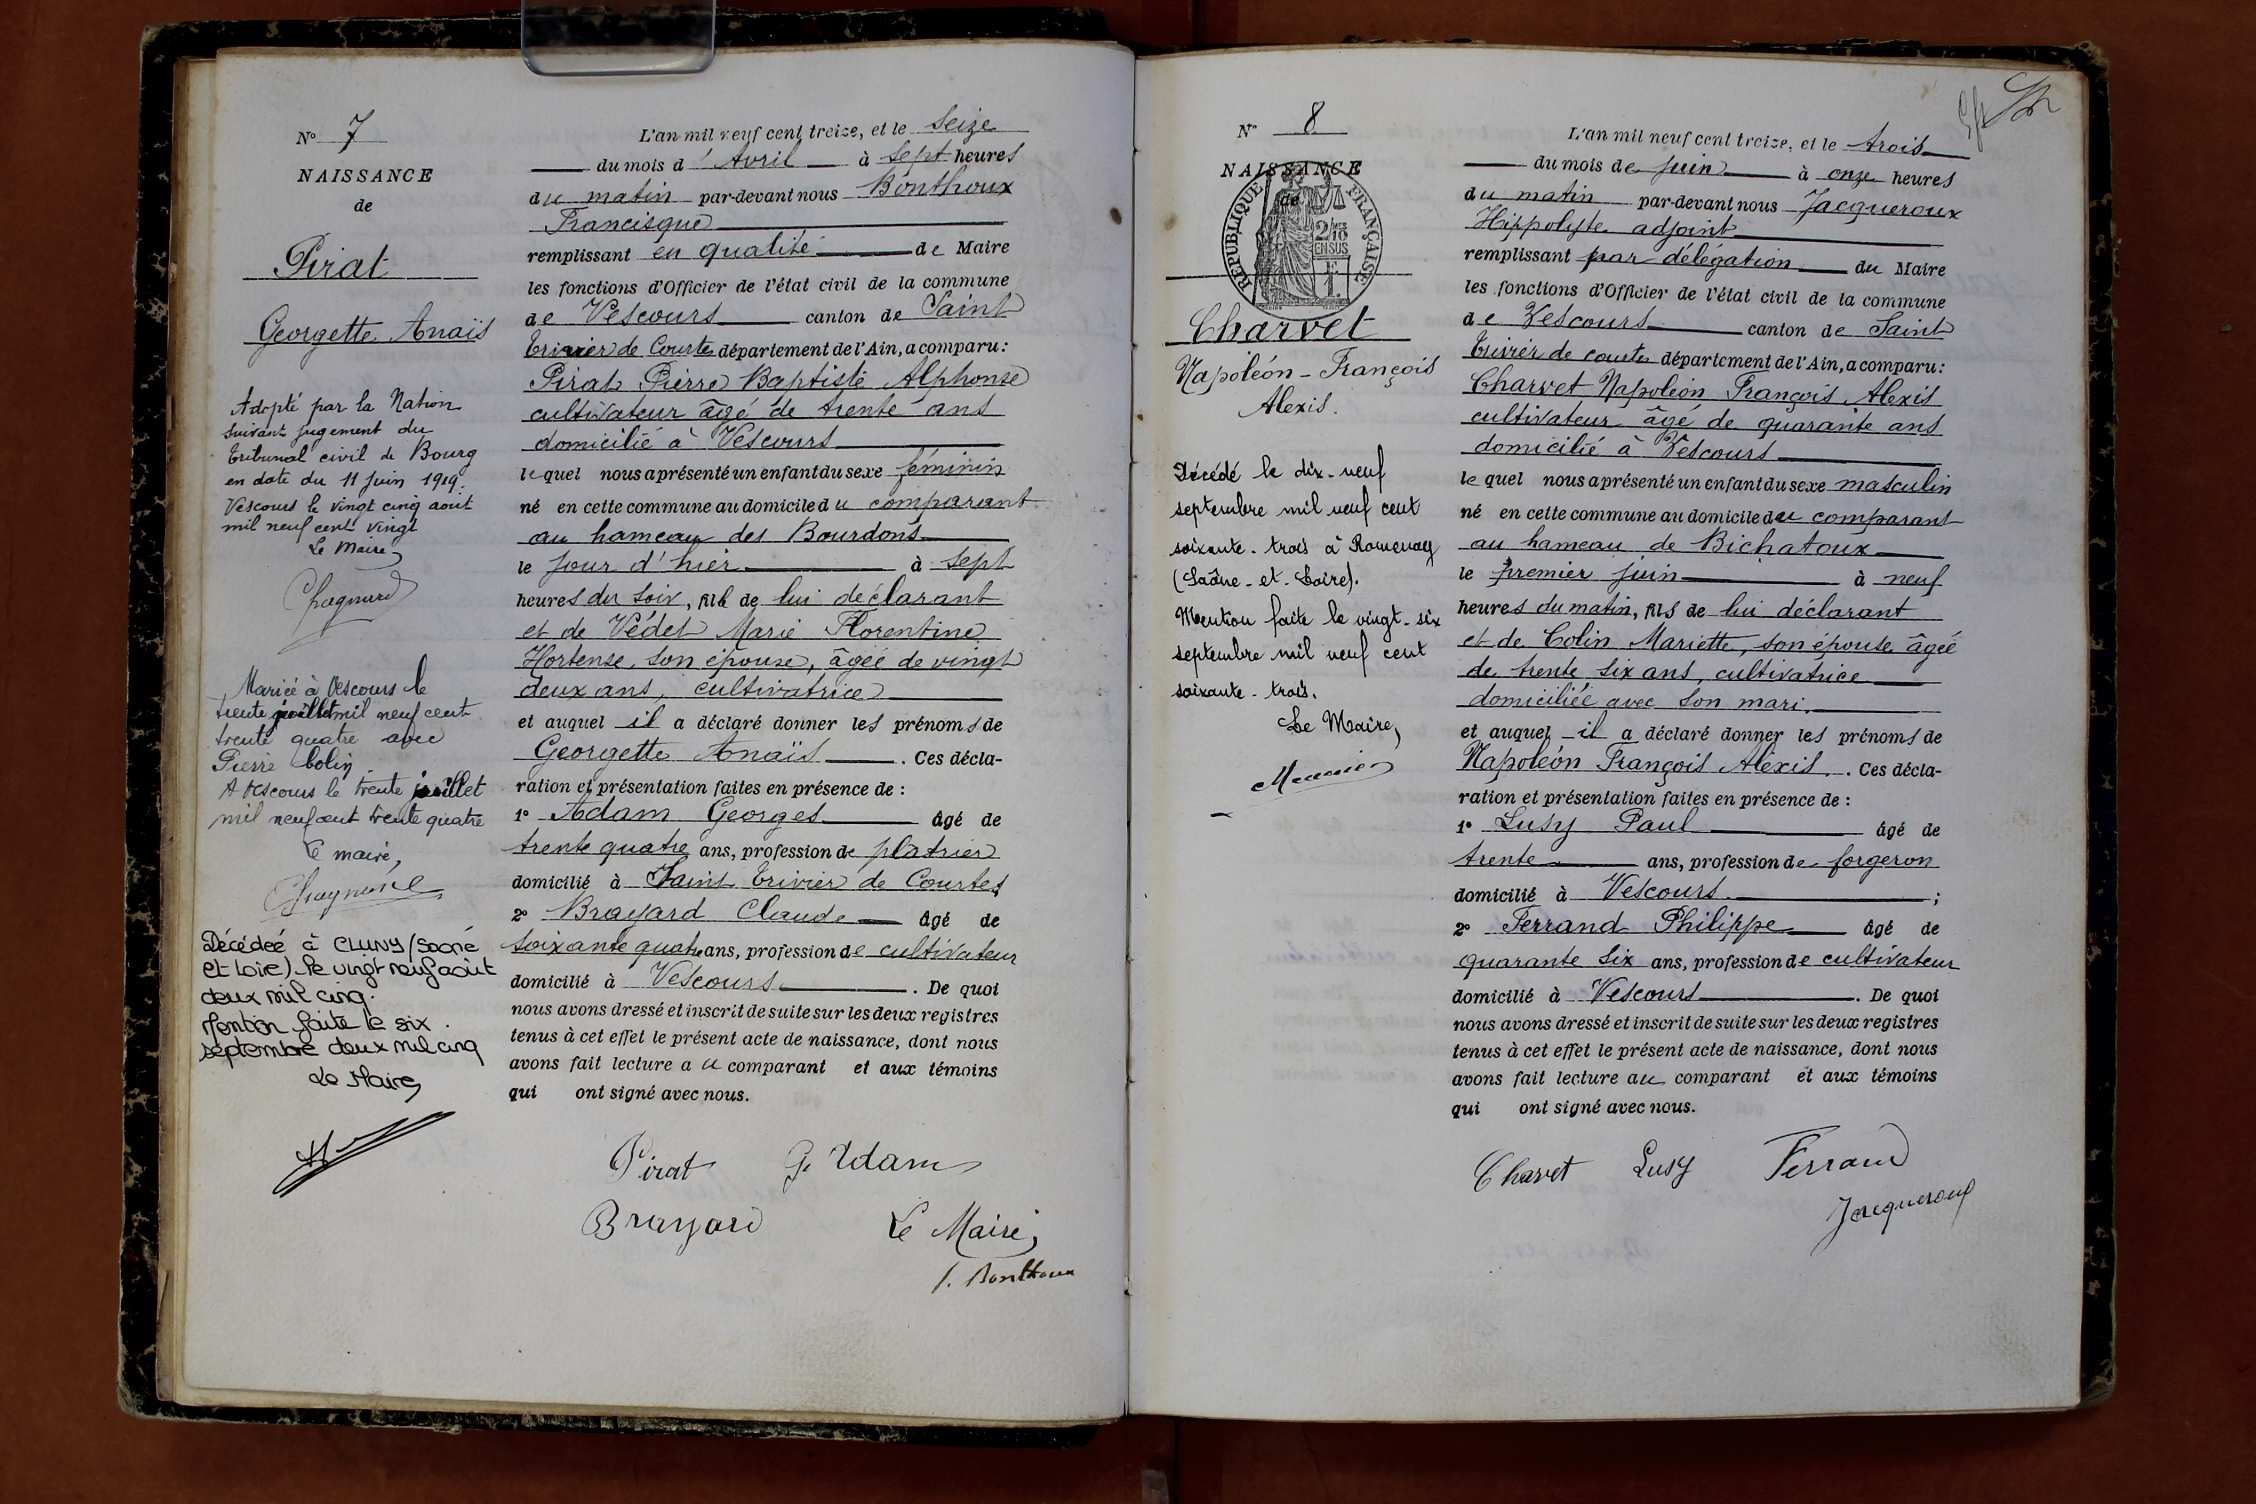 N° 7
NAISSANCE
de
Pirat
Georgette Anaïs
Adopté par la Nation
suivant jugement du
tribunal civil de Bourg
en date du 11 juin 1919.
Vescours le vingt cinq août
mil neuf cent vingt
Le Maire,
Chagnard
Mariée à Vescours le
trente juillet mil neuf cent
trente quatre avec
Pierre Colin
A Vescours le trente juillet
mil neuf cent trente quatre
Le maire,
Chagnard
Décédée à CLUNY (Saône
et Loire) le vingt neuf août
deux mil cinq.
Mention faite le six
septembre deux mil cinq
Le Maire,
L'an mil neuf cent treize, et le seize
du mois d'Avril à sept heures
du matin par-devant nous Bonthoux
Francisque
remplissant en qualité de Maire
les fonctions d'Officier de l'état civil de la commune
de Vescours canton de Saint
Trivier de Courtes département de l'Ain, a comparu :
Pirat Pierre Baptiste Alphonse
cultivateur âgé de trente ans
domicilié à Vescours
lequel nous a présenté un enfant du sexe féminin
né en cette commune au domicile du comparant
au hameau des Bourdons
le jour d'hier à sept
heures du soir, fille de lui déclarant
et de Védet Marie Florentine
Hortense, son épouse, âgée de vingt
deux ans, cultivatrice
et auquel il a déclaré donner les prénoms de
Georgette Anaïs. Ces décla-
ration et présentation faites en présence de :
1° Adam Georges âgé de
trente quatre ans, profession de platrier
domicilié à Saint Trivier de Courtes
2° Brayard Claude âgé de
soixante quatre ans, profession de cultivateur
domicilié à Vescours. De quoi
nous avons dressé et inscrit de suite sur les deux registres
tenus à cet effet le présent acte de naissance, dont nous
avons fait lecture au comparant et aux témoins
qui ont signé avec nous.
Pirat G. Adam
Brayard Le Maire,
F. Bonthoux
N° 8
NAISSANCE
de
REPUBLIQUE FRANÇAISE
2/10
EN SUS
Charvet
Napoléon-François
Alexis.
Décédé le dix-neuf
septembre mil neuf cent
soixante-trois à Romenay
(Saône-et-Loire).
Mention faite le vingt-six
septembre mil neuf cent
soixante-trois.
Le Maire,
L'an mil neuf cent treize, et le trois
du mois de juin à onze heures
du matin par-devant nous Jacqueroux
Hippolyte adjoint
remplissant par délégation du Maire
les fonctions d'Officier de l'état civil de la commune
de Vescours canton de Saint
Trivier de courtes département de l'Ain, a comparu :
Charvet Napoléon François Alexis
cultivateur âgé de quarante ans
domicilié à Vescours
lequel nous a présenté un enfant du sexe masculin
né en cette commune au domicile du comparant
au hameau de Bichatoux
le premier juin à neuf
heures du matin, fils de lui déclarant
et de Colin Mariette, son épouse âgée
de trente six ans, cultivatrice
domiciliée avec son mari.
et auquel il a déclaré donner les prénoms de
Napoléon François Alexis. Ces décla-
ration et présentation faites en présence de :
1° Lusy Paul âgé de
trente ans, profession de forgeron
domicilié à Vescours ;
2° Ferrand Philippe âgé de
quarante six ans, profession de cultivateur
domicilié à Vescours. De quoi
nous avons dressé et inscrit de suite sur les deux registres
tenus à cet effet le présent acte de naissance, dont nous
avons fait lecture au comparant et aux témoins
qui ont signé avec nous.
Charvet Lusy Ferrand
Jacqueroux